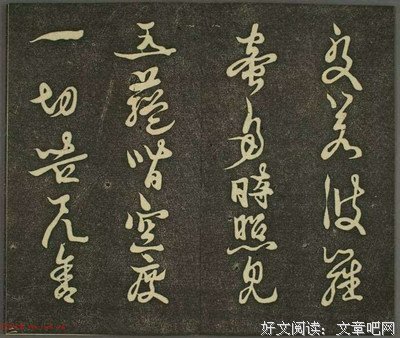 般若波羅
蜜多時照見
五蘊皆空度
一切苦厄舍
好文阅读：文章吧网